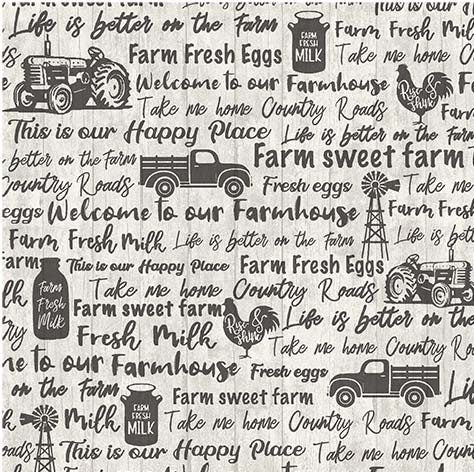 Life is better on the Farm
Farm Fresh Eggs
FARM FRESH MILK
Farm Fresh Milk
Take me home Co
Welcome to our Farmhouse
Rise & Shine
Take me home Country Roads
Farm
This is our Happy Place
Life is better on the Farm
better on the Farm
Farm sweet farm
Country Roads
Fresh eggs
Take me
eggs
Welcome to our Farmhouse
Farm Fresh
Farm Fresh Milk
Life is better on the Farm
Life is bett
farm
This is our Happy Place
Farm Fresh Eggs
lk
Farm Fresh Milk
Take me home Country Roads
Farm sweet farm
Rise & Shine
Life is better on the Farm
Fresh Milk
Take me home Country Ro
me to our Farmhouse
Fresh eggs
on the Farm
Farm sweet farm
Milk
FARM FRESH MILK
Take me home Country Roads
Farm
This is our Happy Place
Life is better on the